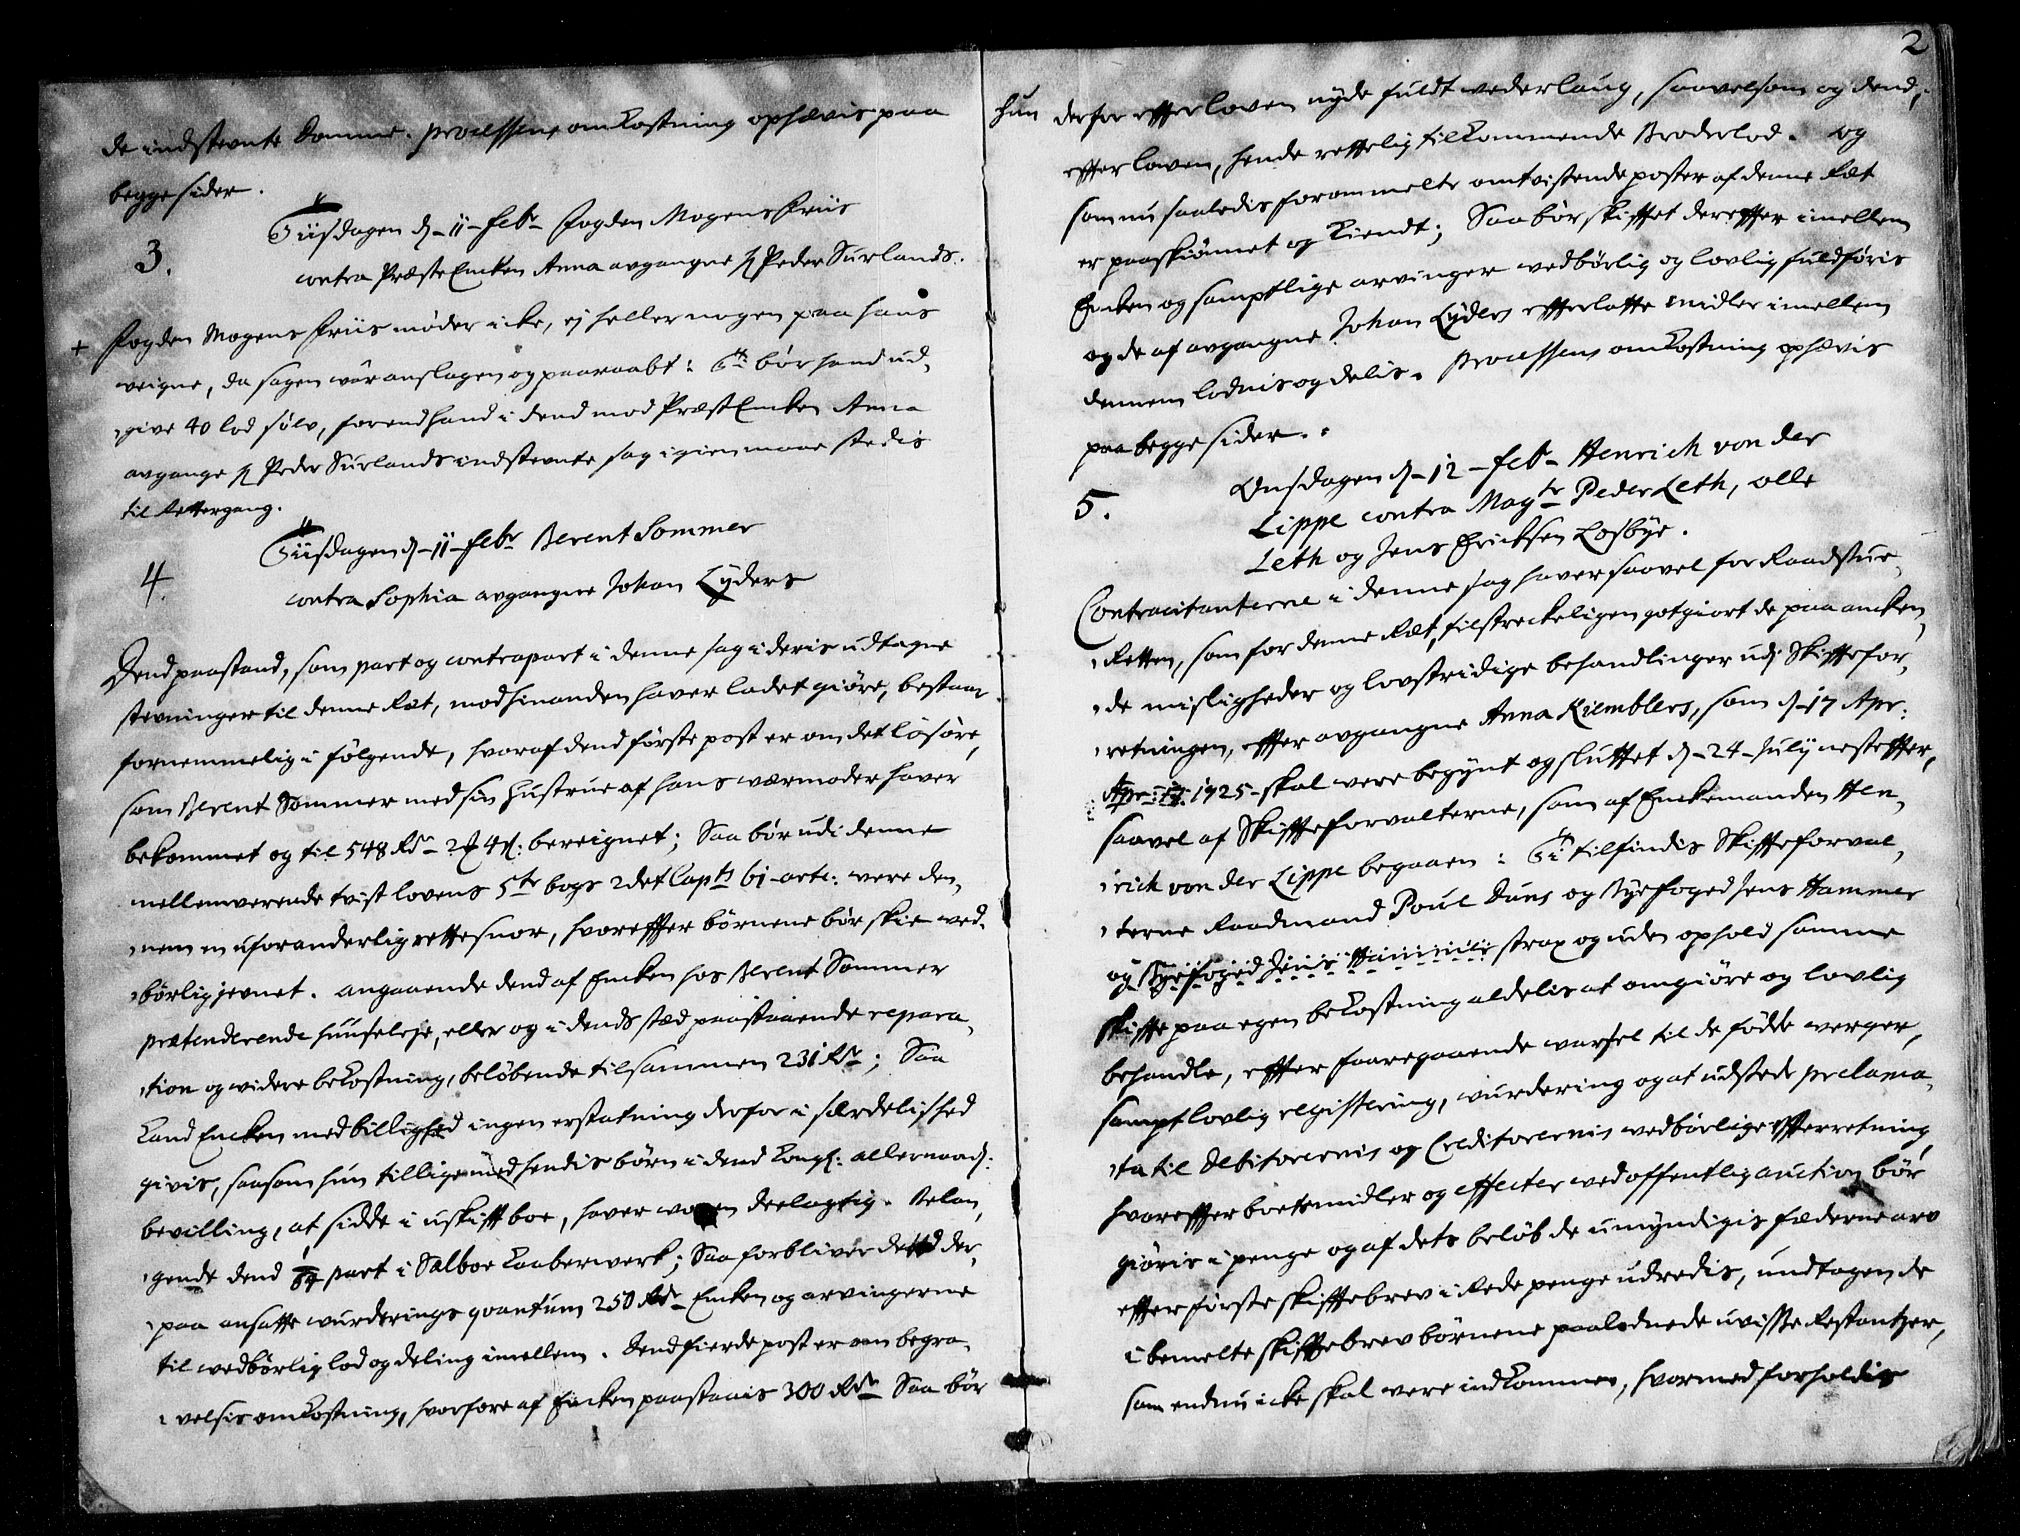 de indstevnte Domme. processens omkostning ophævis paa
begge sider.
3.
Tiisdagen d. 11 Febr. Fogden Mogens Friis
contra Præste Encken Anna avgangne Hr Peder Surlands.
+ Fogden Mogens Friis møder icke, ej heller nogen paa hans
veigne, da sagen vår anslagen og paaraabt: Thi bør hand ud-
give 40 lod sølv, forend hand i dend mod Præst Encken Anna
avgange Hr Peder Surlands indstevnte sag igien maae stedis
til Rettergang.
4.
Tiisdagen d. 11 Febr Berent Sommer
contra Sophia avgangne Johan Lÿders
Dend paastand, som part og contrapart i denne sag i deris udtagne
stevninger til denne Ræt, mod hinanden haver ladet giøre, bestaar
fornemmelig i følgende, hvoraf dend første post er om det løsøre,
som Berent Sommer med sin Hustrue af hans værmoder haver
bekommet og til 548 Rdr 2 4 s: bereignet; Saa bør udi denne
mellemverende tvist lovens 5te bogs 2det Capts 61 artc: være den-
nem en uforanderlig rettesnor, hvorefter børnene bør skie ved-
børlig jevnet. angaaende dend af Encken hos Berent Sommer
prætenderende huusleje, eller og i dends stæd paastaaende repara-
tion og videre bekostning, beløbende tilsammen 231 Rdr; Saa
kand Encken med billighed ingen erstatning derfor i særdelished
givis, saasom hun tilligemed hendis børn i dend Kongl: allernaad:
bevilling, at sidde i uskift boe, haver været deelagtig. Belan-
gende dend part i Sælboe Kaaberverk; Saa forbliver det ved der-
paa ansatte vurderings qvantum 250 Rdr Encken og arvingerne
til vedbørlig lod og deling imellem. Dend fierde post er om begra-
velsis omkostning, hvorfore af Encken paastaais 300 Rdr Saa bør
2
hun derfor efter loven nyde fuldt vederlaug, saavelsom og dend,
efter loven, hende rettelig tilkommende Broderlod. og
som nu saaledis forommelte omtvistende poster af denne Ræt
er paaskiønnet og kiendt; Saa bør skiftet derefter imellem
Encken og samptlige arvinger vedbørlig og lovlig fuldføris
og de af avgangne Johan Lÿders efterlatte midler imellem
dennem lodnis og delis. Processens omkostning ophævis
paa begge sider.
5.
Onsdagen d. 12 Feb. Henrich von der
Lippe contra Magtr Peder Leth, olle
Leth og Jens Ericksen Losbye.
Contracitanterne i denne sag haver saavel for Raadstue-
Retten, som for denne Ræt, tilstreckeligen gotgiort de paaancken-
de misligheder og lovstridige behandlinger udj Skiftefor-
retningen, efter avgangne Anna Kiemblers, som d. 17 Apr:
Apr: 17 1725 skal være begynt og sluttet d. 24 July nestefter,
saavel af Skifteforvalterne, som af Enckemanden Hen-
rick von der Lippe begaaen: Thi tilfindis Skifteforval-
terne Raadmand Poul Duns og Byefoged Jens Hammer
og Byefoged Jens Hammer strax og uden ophold samme
skifte paa egen bekostning aldelis at omgiøre og lovlig
behandle, efter foregaaende varsel til de fødde verger,
sampt lovlig registering, vurdering og at udstede proclama-
ta til Debitorernis og Creditorernis vedbørlige efterretning
hvorefter boets midler og effecter ved offentlig auction bør
giøris i penge og af dets beløb de umyndigis fæderne arv
efter første skiftebrev i Rede penge udredis, undtagen de
i bemelte skiftebrev børnene paalodnede uvisse Restantzer,
som endnu icke skal være indkommen, hvormed forholdis